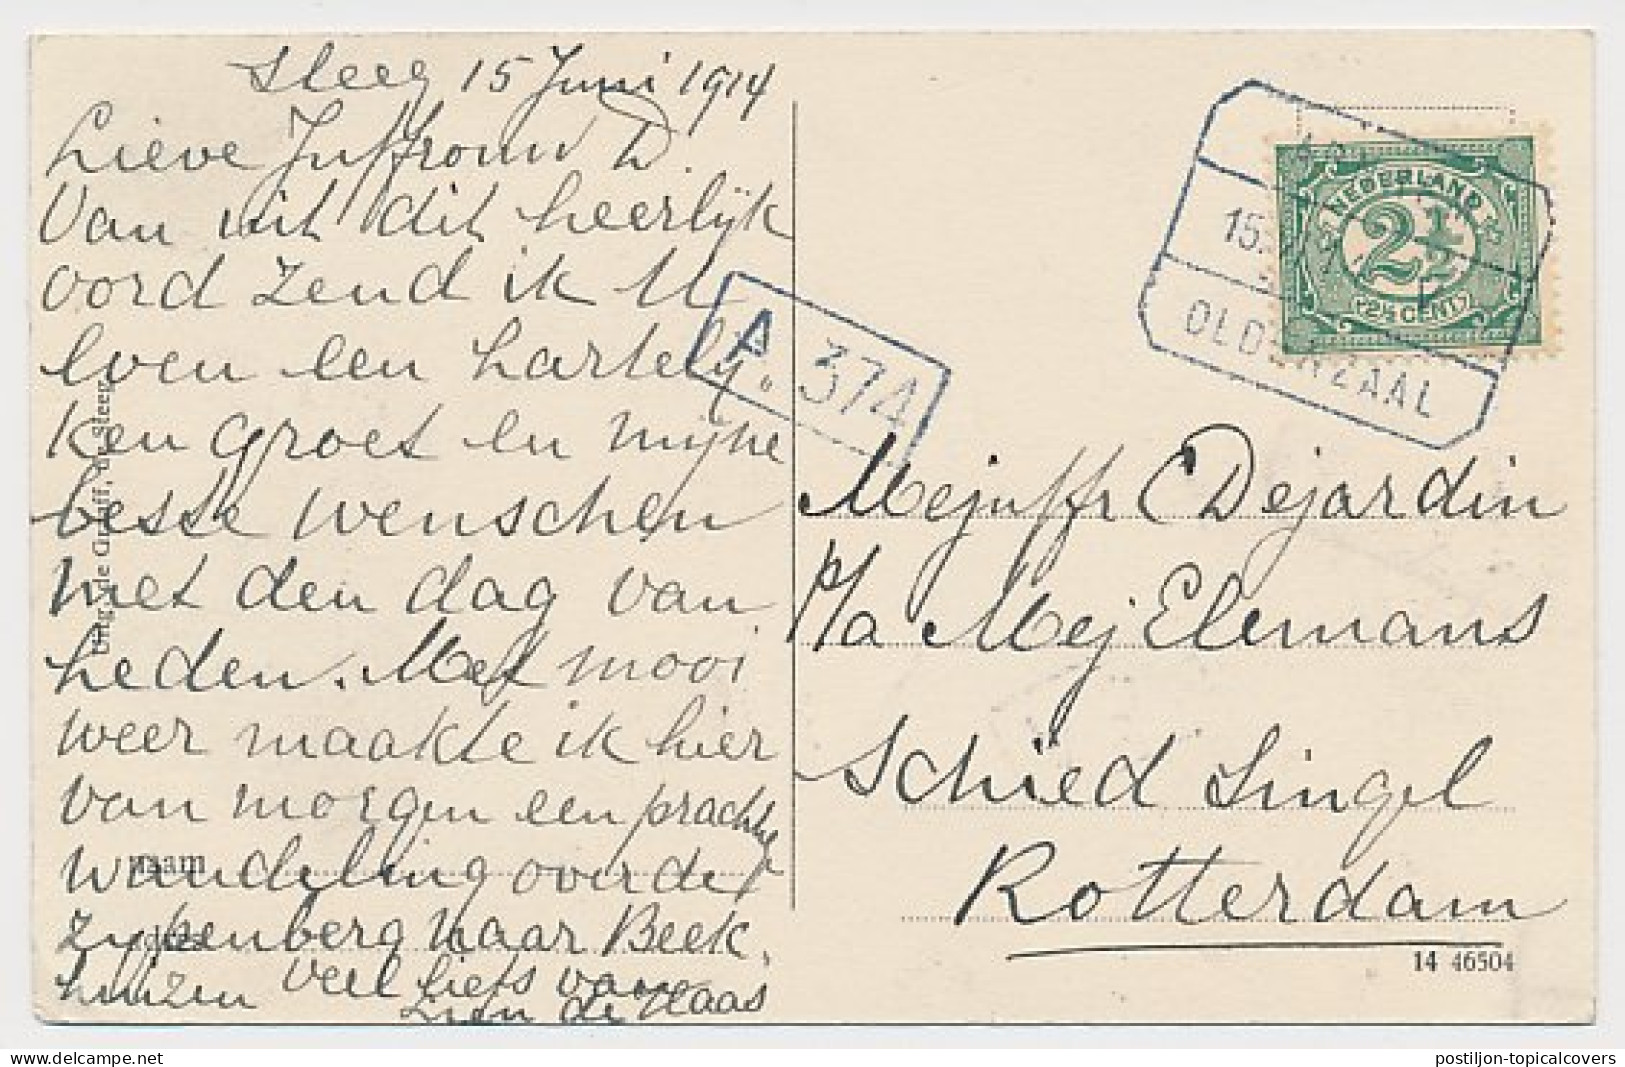 Steeg 15 Juni 1914
Lieve Juffrouw D.
Van uit dit heerlijk
oord zend ik U
even een hartelij
ken groet en mijne
beste wenschen
met den dag van
heden. Met mooi
weer maakte ik hier
van morgen een prachtige
wandeling over de
Zijpenberg naar Beek
huizen Veel liefs van
Zien de Haas
naam
adres
A. 374
NEDERLAND
2½
2½ CENT
15.
OLDENZAAL
Mejuffr C Dejardin
p/a Mej Elemans
Schied Singel
Rotterdam
14 46504
delcampe.net
postiljon-topicalcovers